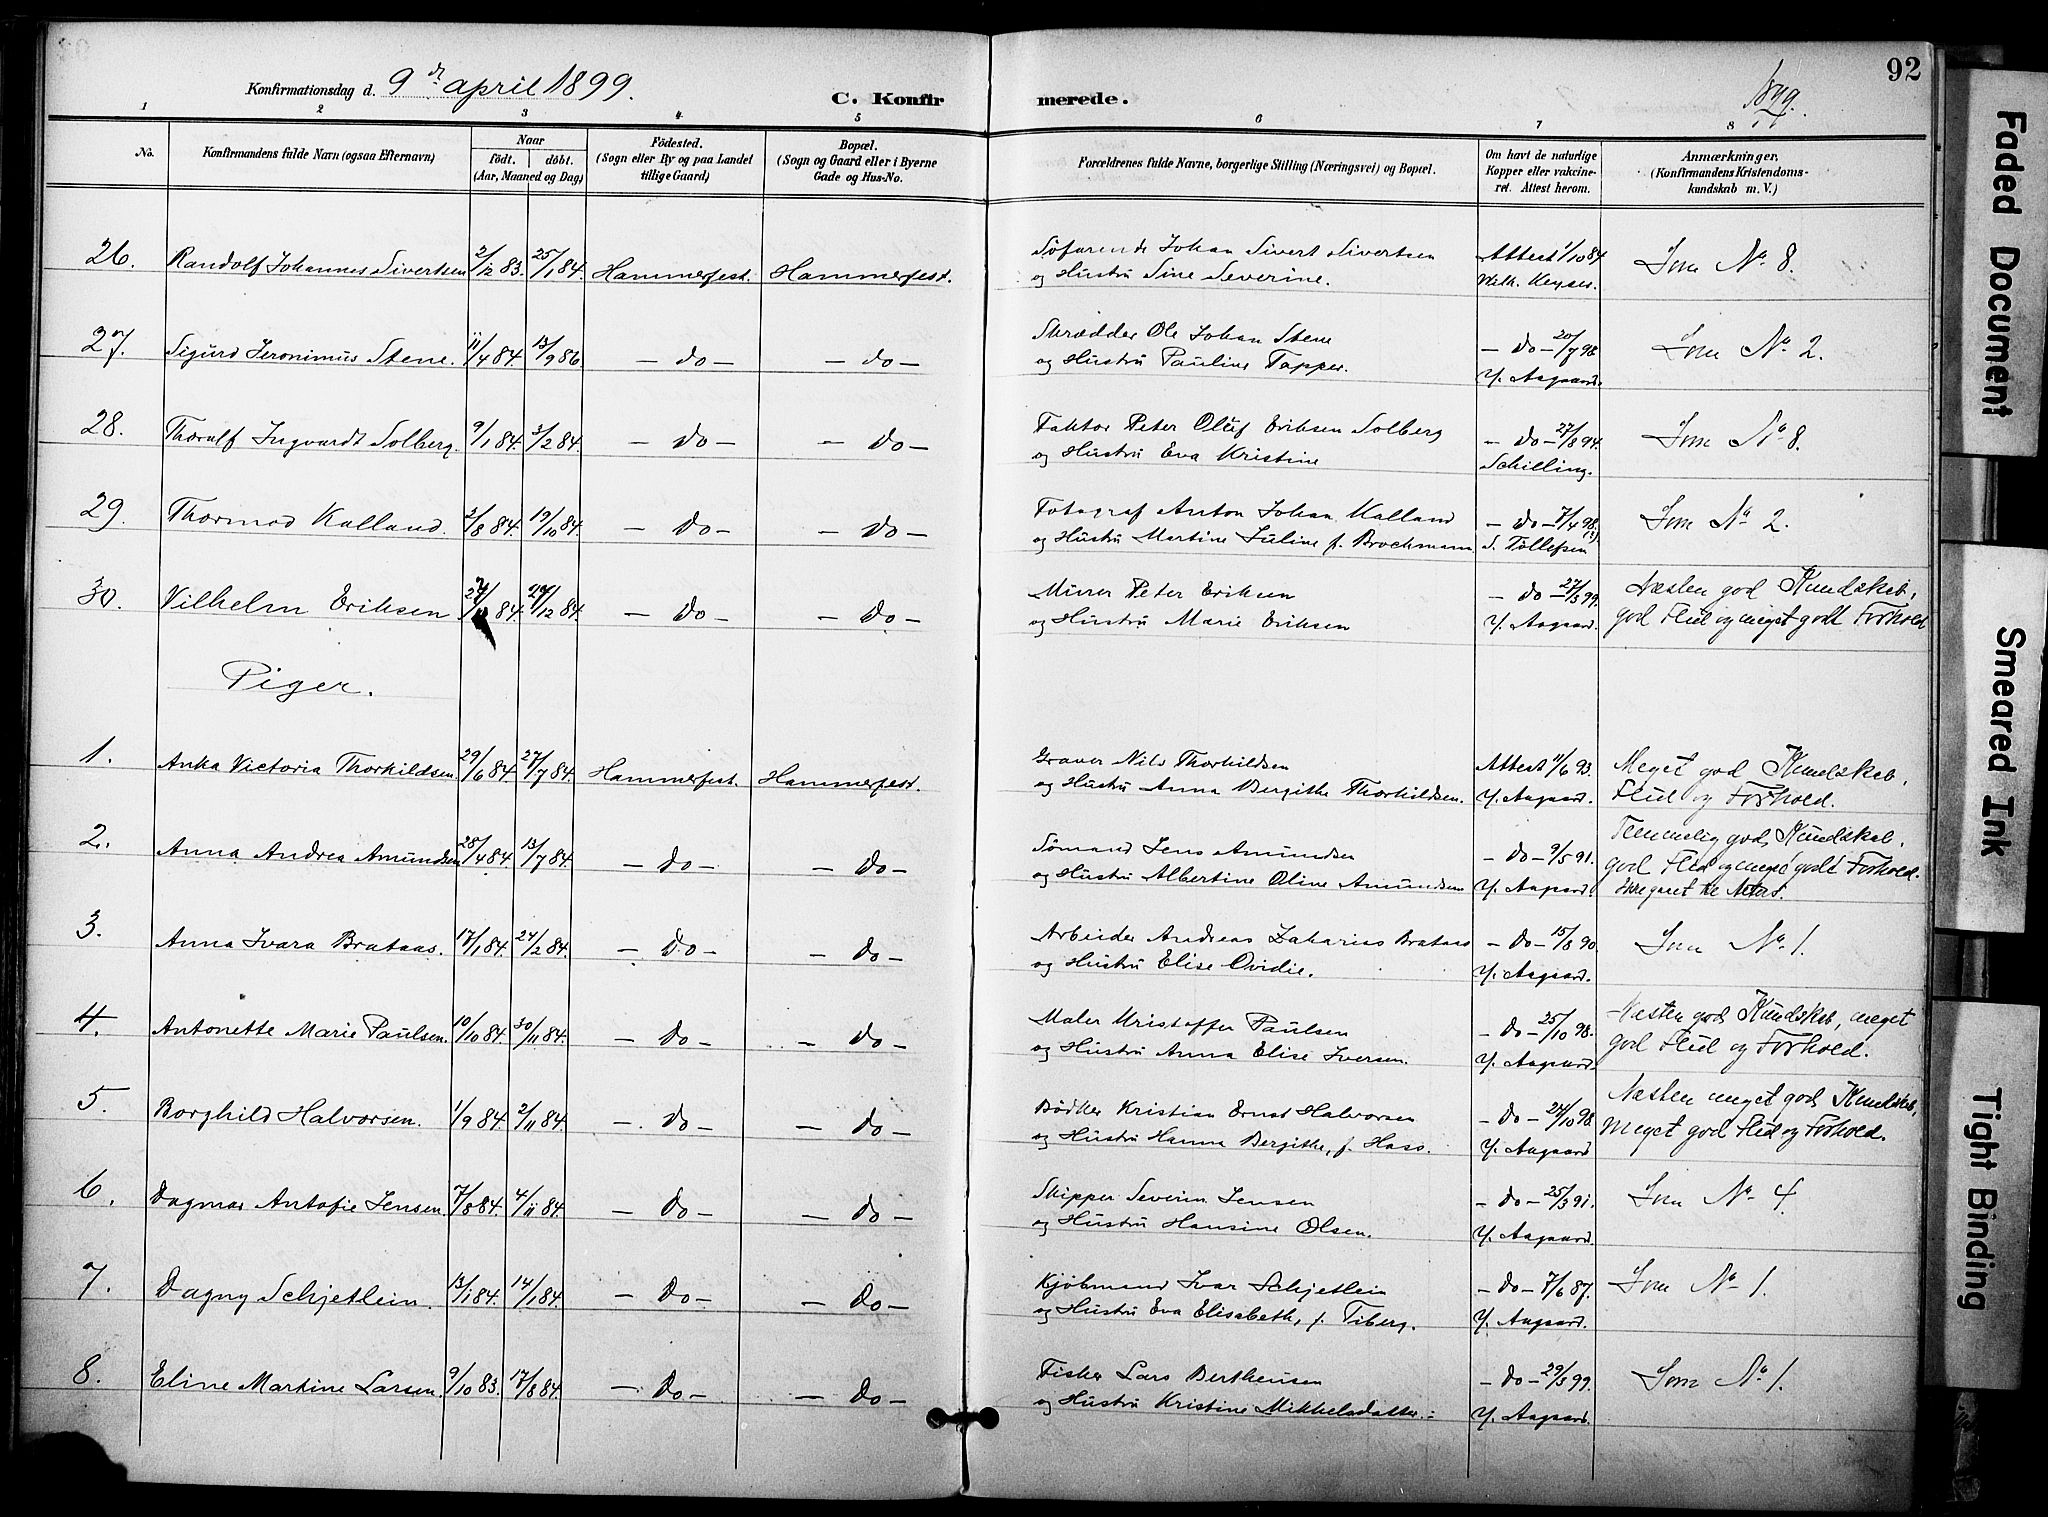 92
Konfirmationsdag d. 9de april 1899.
C. Konfirmerede.
1899.
1 2 3 4 5 6 7 8
No.
Konfirmandens fulde Navn (ogsaa Efternavn)
Naar
födt. döbt.
(Aar, Maaned og Dag)
Födested.
(Sogn eller By og paa Landet
tillige Gaard)
Bopæl.
(Sogn og Gaard eller i Byerne
Gade og Hus-No.
Forældrenes fulde Navne, borgerlige Stilling (Næringsvei) og Bopæl.
Om havt de naturlige
Kopper eller vakcine-
ret. Attest herom.
Anmærkninger.
(Konfirmandens Kristendoms-
kundskab m. V.)
26. Randolf Johannes Sivertsen 2/12 83. 25/1 84. Hammerfest. Hammerfest. Söfarende Johan Sivert Sivertsen Attest 1/10 84 Som No 8.
og Hustru Sine Severine. Wilh. Keyser.
27. Sigurd Jeronimus Stene. 11/4 84. 13/9 86. – do – – do – Skrædder Ole Johan Stene – do – 20/7 98. Som No 2.
og Hustru Pauline Tapper. Y. Aagaard.
28. Thoralf Ingvardt Solberg. 9/1 84. 3/2 84. – do – – do – Faktor Peter Oluf Eriksen Solberg – do – 27/8 94. Som No 8.
og Hustru Eva Kristine Schilling.
29. Thormod Kalland. 2/8 84. 19/10 84. – do – – do – Fotograf Anton Johan Kalland – do – 7/4 98. Som No 2.
og Hustru Martine Juline f. Brochmann S. Tollefsen
30. Vilhelm Eriksen 84. /12 84. – do – – do – Murer Peter Eriksen – do – 27/3 99. Næsten god Kundskab,
og Hustru Marie Eriksen Y. Aagaard. god Flid og meget godt Forhold
Piger.
1. Anka Victoria Thorkildsen. 29/6 84. 27/7 84. Hammerfest. Hammerfest. Graver Nils Thorkildsen Attest 11/6 93. Meget god Kundskab,
og Hustru Anna Bergithe Thorkildsen. Y. Aagaard. Flid og Forhold.
2. Anna Andrea Amundsen 28/4 84. 13/7 84. – do – – do – Sømand Jens Amundsen – do – 9/5 91. Temmelig god Kundskab,
og Hustru Albertine Oline Amundsen Y. Aagaard. god Flid og meget godt Forhold.
Ikke gaaet til Alters.
3. Anna Ivara Brataas. 17/1 84. 24/2 84. – do – – do – Arbeider Andreas Zakarias Brataas – do – 15/8 90. Som No 1.
og Hustru Elise Ovidie. Y. Aagaard.
4. Antonette Marie Paulsen. 10/10 84. 30/11 84. – do – – do – Maler Kristoffer Paulsen – do – 25/10 98. Næsten god Kundskab, meget
og Hustru Anna Elise Iversen. Y. Aagaard. god Flid og Forhold.
5. Borghild Halvorsen. 1/9 84. 2/11 84. – do – – do – Bödker Kristian Ernst Halvorsen – do – 24/10 98. Næsten meget god Kundskab,
og Hustru Hanna Bergithe, f. Hass. Y. Aagaard meget god Flid og Forhold.
6. Dagmar Antofie Jensen. 7/8 84. 4/11 84. – do – – do – Skipper Severin Jensen – do – 25/3 91. Som No 4.
og Hustru Hansine Olsen. Y. Aagaard.
7. Dagny Schjetlein. 13/1 84. 14/1 84. – do – – do – Kjöbmand Ivar Schjetlein – do – 7/6 87. Som No 1.
og Hustru Eva Elisabeth, f. Tiberg. Y. Aagaard.
8. Eline Martine Larsen. 9/10 83. 17/8 84. – do – – do – Fisker Lars Berthensen – do – 29/3 99. Som No 1.
og Hustru Kristine Mikkelsdatter. Y. Aagaard.
Faded Document
Smeared Ink
Tight Binding